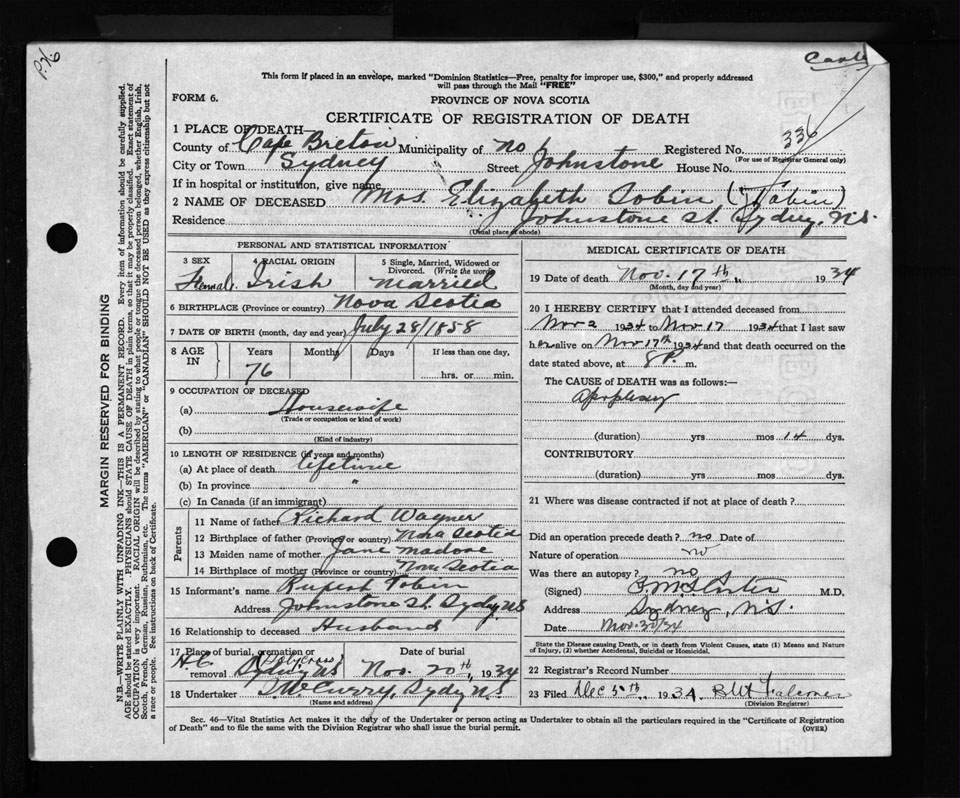 P.H. 6
Card
This form if placed in an envelope, marked "Dominion Statistics—Free, penalty for improper use, $300," and properly addressed
will pass through the Mail "FREE"
FORM 6.
PROVINCE OF NOVA SCOTIA
CERTIFICATE OF REGISTRATION OF DEATH
336
1 PLACE OF DEATH—
County of Cape Breton Municipality of no Registered No.
(For use of Registrar General only)
City or Town Sydney Street Johnstone House No.
If in hospital or institution, give name
2 NAME OF DECEASED Mrs. Elizabeth Tobin (Tobin)
Residence Johnstone St. Sydney, N.S.
(Usual place of abode)
PERSONAL AND STATISTICAL INFORMATION
3 SEX Female
4 RACIAL ORIGIN Irish
5 Single, Married, Widowed or Divorced. (Write the word) Married
6 BIRTHPLACE (Province or country) Nova Scotia
7 DATE OF BIRTH (month, day and year) July 28/1858
8 AGE IN Years Months Days If less than one day,
76 hrs. or min.
9 OCCUPATION OF DECEASED
(a) Housewife
(Trade or occupation or kind of work)
(b)
(Kind of industry)
10 LENGTH OF RESIDENCE (in years and months)
(a) At place of death lifetime
(b) In province "
(c) In Canada (if an immigrant)
Parents
11 Name of father Richard Wagner
12 Birthplace of father (Province or country) Nova Scotia
13 Maiden name of mother Jane
14 Birthplace of mother (Province or country) Nova Scotia
15 Informant's name Rupert Tobin
Address Johnstone St. Sydney N.S
16 Relationship to deceased Husband
17 Place of burial, cremation or removal Holy Cross Sydney N.S
Date of burial Nov. 20th, 1934
18 Undertaker T. W. Curry, Sydney N.S.
(Name and address)
MEDICAL CERTIFICATE OF DEATH
19 Date of death Nov. 17th, 1934
(Month, day and year)
20 I HEREBY CERTIFY that I attended deceased from
Nov 2 1934 to Nov 17 1934 that I last saw
her alive on Nov 17th 1934 and that death occurred on the
date stated above, at 8 P. m.
The CAUSE of DEATH was as follows:—
Apoplexy
(duration) yrs mos 14 dys.
CONTRIBUTORY
(duration) yrs mos dys.
21 Where was disease contracted if not at place of death?
Did an operation precede death? no Date of
Nature of operation no
Was there an autopsy? no
(Signed) M.D.
Address Sydney, N.S.
Date Nov. 20/34
State the Disease causing Death, or in death from Violent Causes, state (1) Means and Nature of Injury, (2) whether Accidental, Suicidal or Homicidal.
22 Registrar's Record Number
23 Filed Dec 5th, 1934 Falconer
(Division Registrar)
Sec. 46—Vital Statistics Act makes it the duty of the Undertaker or person acting as Undertaker to obtain all the particulars required in the "Certificate of Registration
of Death" and to file the same with the Division Registrar who shall issue the burial permit.
(OVER)
MARGIN RESERVED FOR BINDING
N.B.—WRITE PLAINLY WITH UNFADING INK—THIS IS A PERMANENT RECORD. Every item of information should be carefully supplied.
AGE should be stated EXACTLY. PHYSICIANS should STATE CAUSE OF DEATH in plain terms, so that it may be properly classified. Exact statement of
OCCUPATION is very important. RACIAL ORIGIN will be described by stating to what people or tongue the deceased person belonged, whether English, Irish,
Scotch, French, German, Russian, Ruthenian, etc. The terms "AMERICAN" or "CANADIAN" SHOULD NOT BE USED as they express citizenship but not
a race or people. See instructions on back of Certificate.